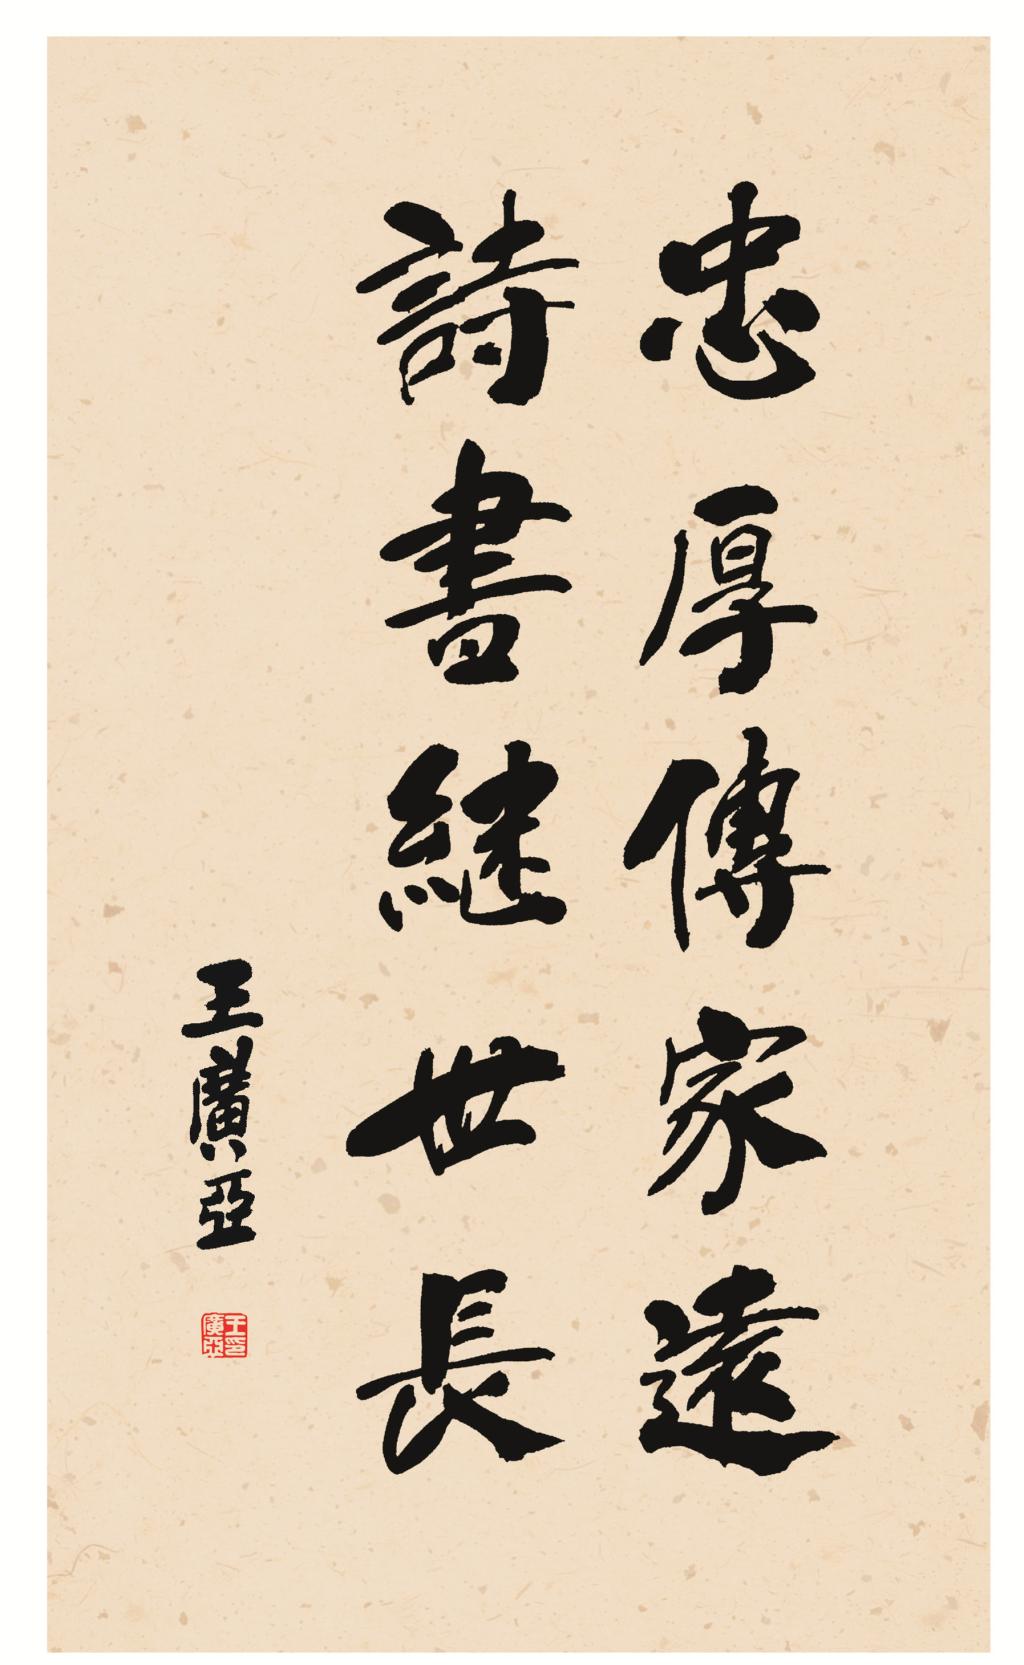 忠厚傳家遠
詩書継世長
王廣亞
王廣亞印